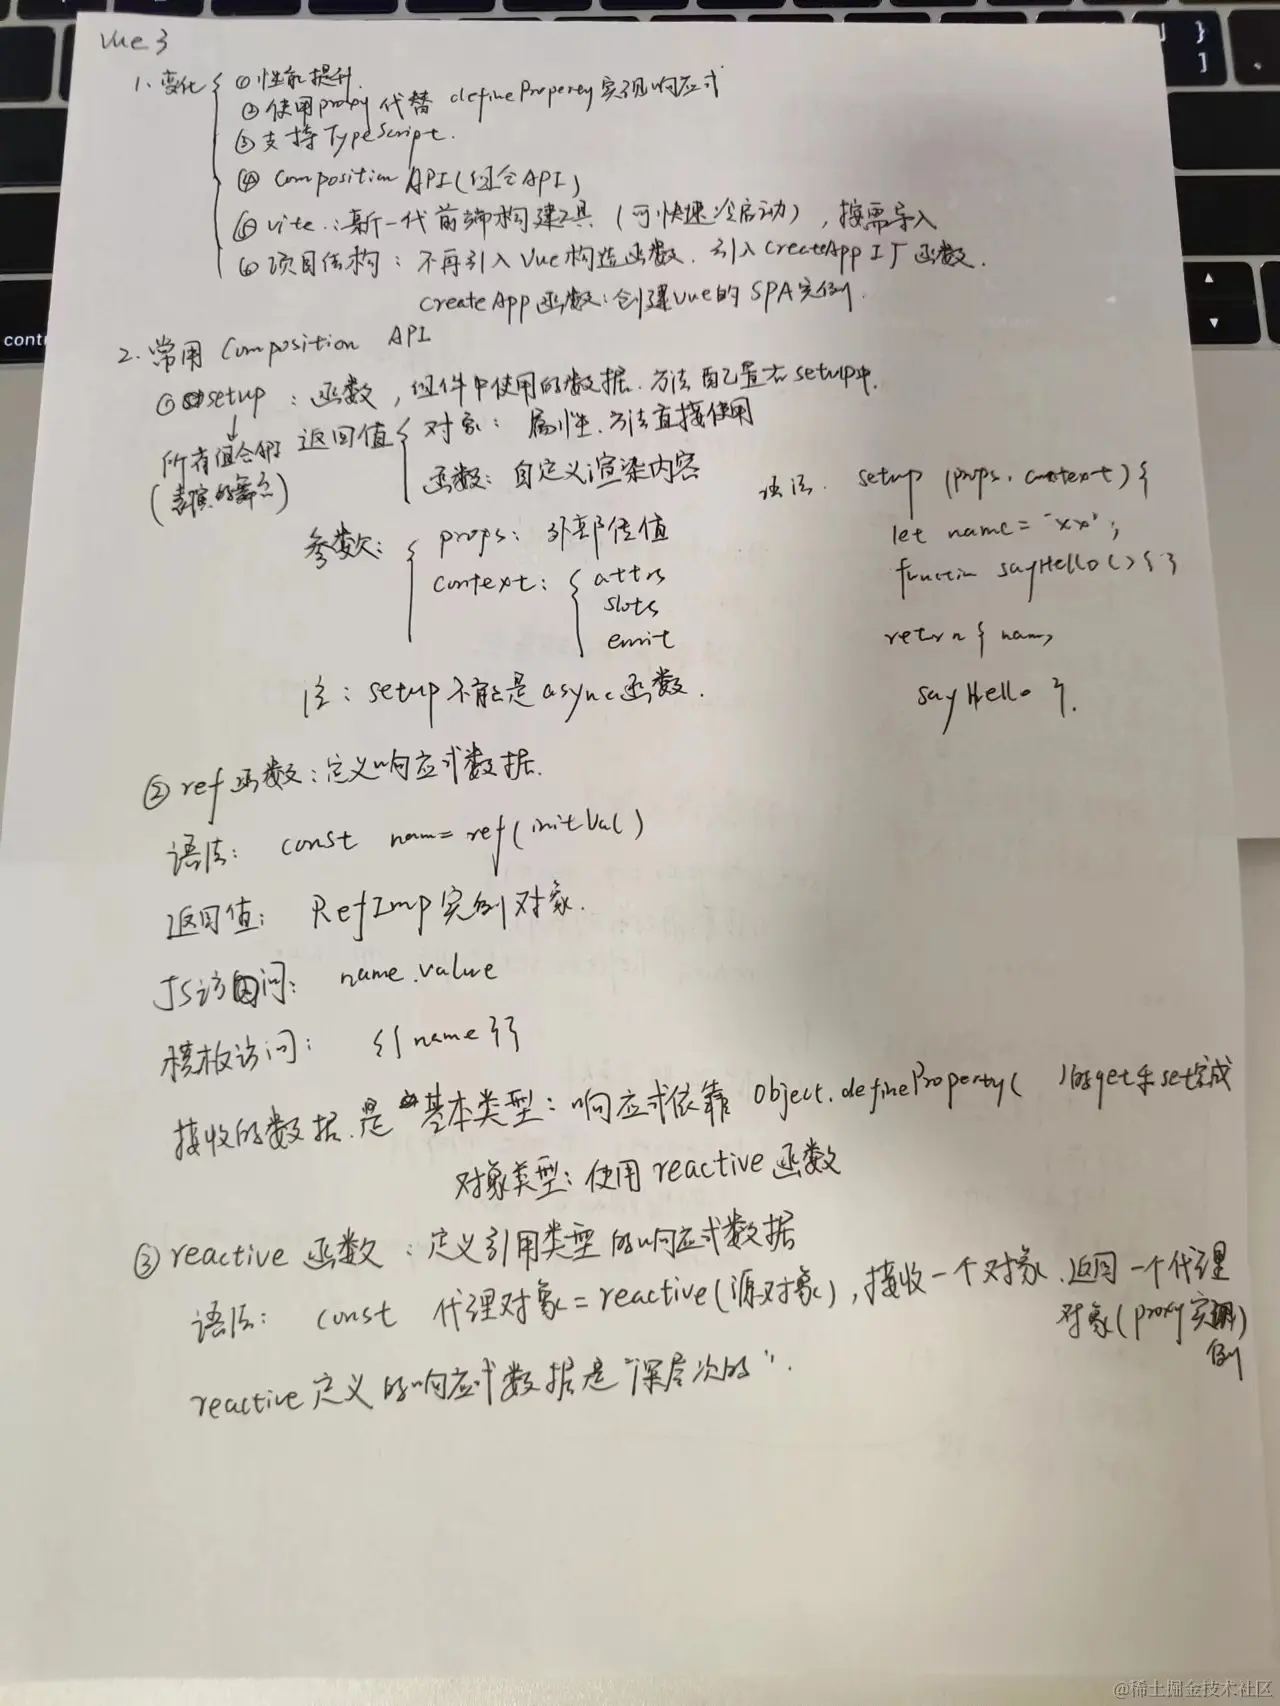 Vue3
1、变化
①性能提升.
②使用proxy代替 defineProperty实现响应式
③支持TypeScript.
④ Composition API(组合API)
⑤ vite：新一代前端构建工具（可快速冷启动），按需导入
⑥项目结构：不再引入Vue构造函数、引入createApp工厂函数.
createApp函数：创建vue的SPA实例.
2.常用 Composition API
① setup：函数，组件中使用的数据、方法配置在setup中.
所有组合API
(表演的舞台)
返回值
对象：属性、方法直接使用
函数：自定义渲染内容
参数：
props：外部传值
context：
attrs
slots
emit
注：setup不能是async函数.
语法. setup (props, context) {
let name = 'xx';
function sayHello() { }
return { name,
sayHello }.
②ref函数：定义响应式数据.
语法：const name=ref(initVal)
返回值：RefImp实例对象.
JS访问：name.value
模板访问：{{name}}
接收的数据是 基本类型：响应式依靠 Object.defineProperty( )的get与set完成
对象类型：使用reactive函数
③reactive函数：定义引用类型的响应式数据
语法：const 代理对象=reactive(源对象)，接收一个对象、返回一个代理
对象(proxy实
例)
reactive定义的响应式数据是“深层次的”.
control
@稀土掘金技术社区